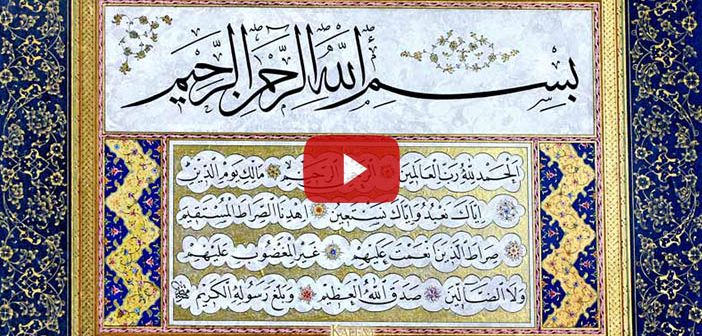 بِسْمِ اللهِ الرَّحْمٰنِ الرَّحِيمِ
الحمد لله رب العالمين الرحيم مالك يوم الدين
اياك نعبد واياك نستعين اهدنا الصراط المستقيم
صراط الذين انعمت عليهم غير المغضوب عليهم
ولا الضالين صدق الله العظيم وبلغ رسوله الكريم